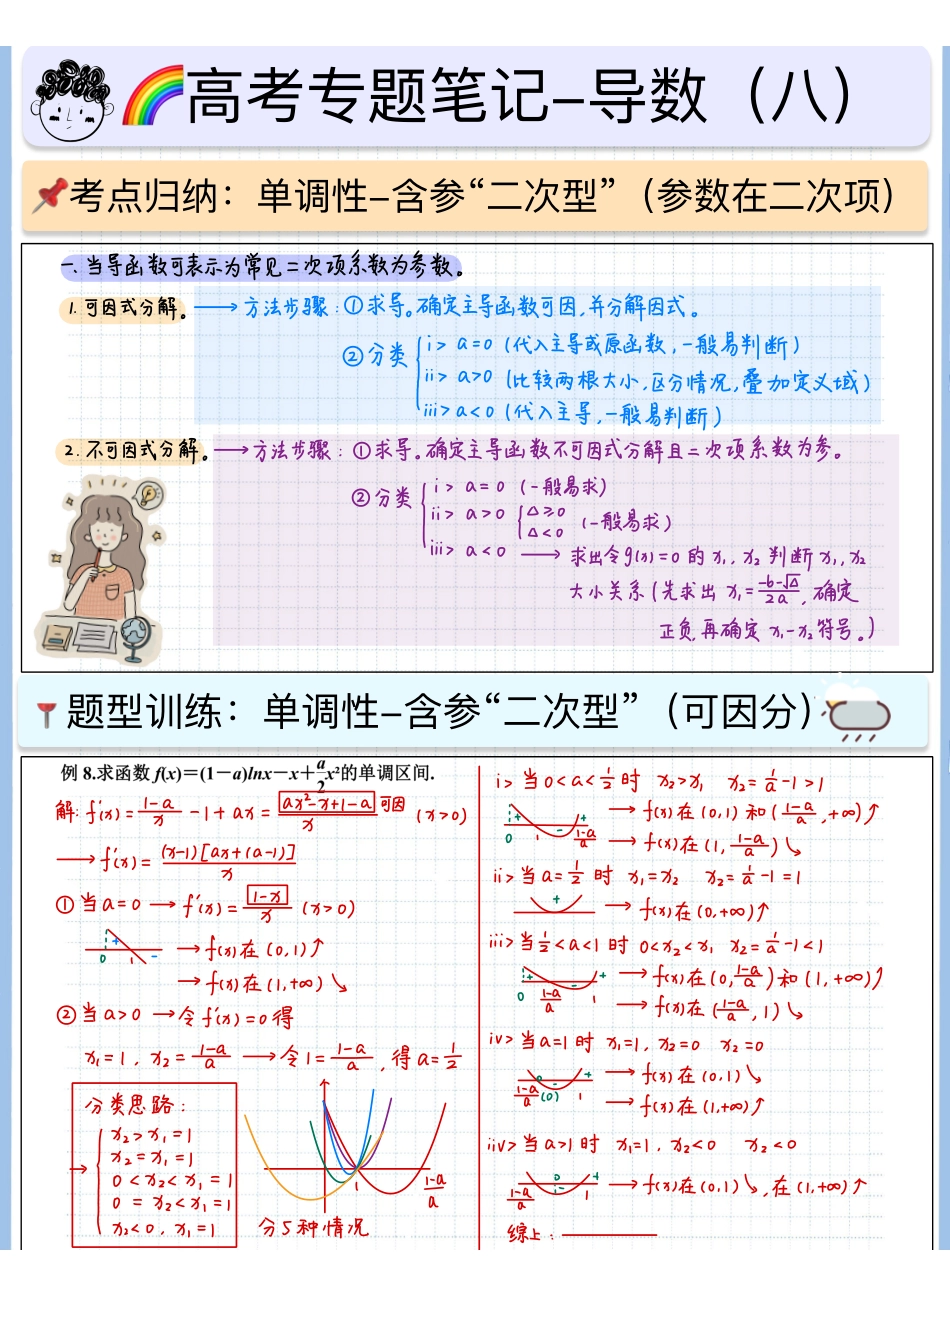 高考专题笔记-导数（八）
考点归纳：单调性-含参“二次型”（参数在二次项）
一、当导函数可表示为常见二次项系数为参数。
1. 可因式分解。 → 方法步骤：①求导。确定主导函数可因，并分解因式。
②分类 i> a=0 (代入主导或原函数，一般易判断)
ii> a>0 (比较两根大小，区分情况，叠加定义域)
iii> a<0 (代入主导，一般易判断)
2. 不可因式分解。 → 方法步骤：①求导。确定主导函数不可因式分解且二次项系数为参。
②分类 i> a=0 (一般易求)
ii> a>0 { Δ≥0 Δ<0 (一般易求)
iii> a<0 → 求出令g(x)=0 的 x₁、x₂ 判断 x₁，x₂
大小关系(先求出 x₁=(-b-√Δ)/2a，确定
正负，再确定 x₁-x₂ 符号。)
题型训练：单调性-含参“二次型”（可因分）
例 8.求函数 f(x)=(1-a)lnx-x+a/2x²的单调区间.
解: f'(x)=(1-a)/x -1+ax=(ax²-x+1-a)/x 可因 (x>0)
→ f'(x)=(x-1)[ax+(a-1)]/x
①当a=0 → f'(x)=(1-x)/x (x>0)
+ - 0 1 → f(x)在(0,1)↑
→ f(x)在(1,+∞)↘
②当a>0 → 令f'(x)=0得
x₁=1, x₂=(1-a)/a → 令1=(1-a)/a，得a=1/2
分类思路：
x₂>x₁=1
x₂=x₁=1
0<x₂<x₁=1
0=x₂<x₁=1
x₂<0, x₁=1
1 (1-a)/a
分5种情况
i> 当0<a<1/2时 x₂>x₁ x₂=1/a-1>1
+ - + 0 1 (1-a)/a → f(x)在(0,1)和((1-a)/a,+∞)↑
→ f(x)在(1,(1-a)/a)↘
ii> 当a=1/2时 x₁=x₂ x₂=1/a-1=1
+ → f(x)在(0,+∞)↑
iii> 当1/2<a<1时 0<x₂<x₁ x₂=1/a-1<1
+ - + 0 (1-a)/a 1 → f(x)在(0,(1-a)/a)和(1,+∞)↑
→ f(x)在((1-a)/a,1)↘
iv> 当a=1时 x₁=1, x₂=0 x₂=0
- + (1-a)/a (0) 1 → f(x)在(0,1)↘
→ f(x)在(1,+∞)↑
iiv> 当a>1时 x₁=1, x₂<0 x₂<0
0 - + (1-a)/a 1 → f(x)在(0,1)↘,在(1,+∞)↑
综上：